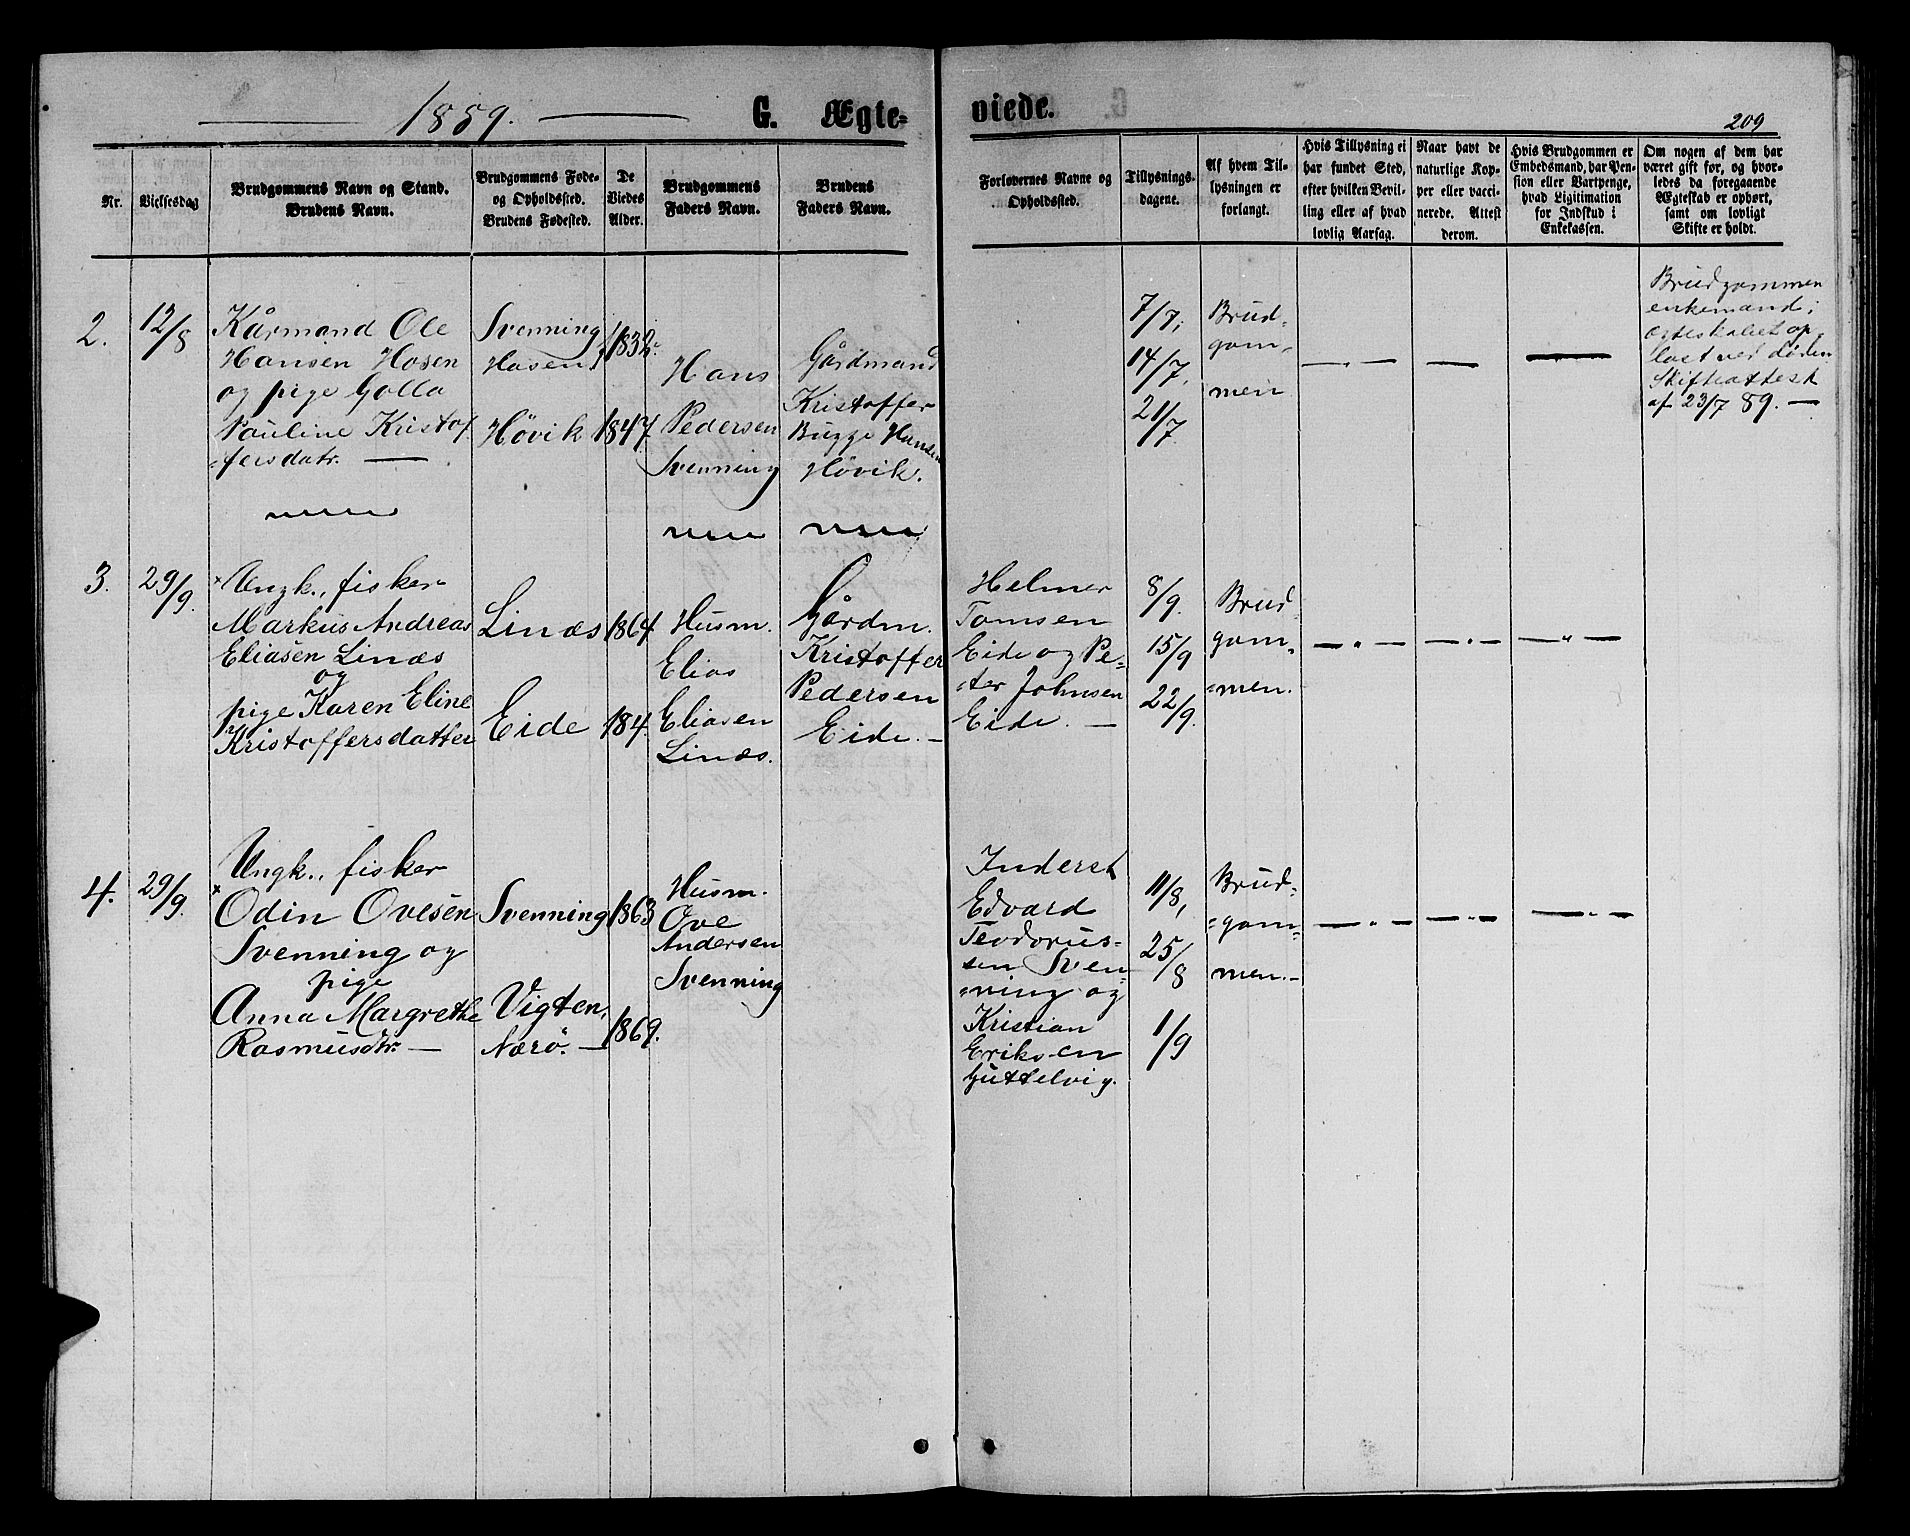 1889.
G. Ægte=
viede.
209
Nr.
Vielsesdag
Brudgommens Navn og Stand.
Brudens Navn.
Brudgommens Føde-
og Opholdssted.
Brudens Fødested.
De
Viedes
Alder.
Brudgommens
Faders Navn.
Brudens
Faders Navn.
Forlovernes Navne og
Opholdssted.
Tillysnings-
dagene.
Af hvem Til-
lysningen er
forlangt.
Hvis Tillysning ei
har fundet Sted,
efter hvilken Bevil-
ling eller af hvad
lovlig Aarsag.
Naar havt de
naturlige Kop-
per eller vacci-
nerede. Attest
derom.
Hvis Brudgommen er
Embedsmand, har Pen-
sion eller Vartpenge,
hvad Ligitimation
for Indskud i
Enkekassen.
Om nogen af dem har
været gift før, og hvor-
ledes da foregaaende
Ægteskab er ophørt,
samt om lovligt
Skifte er holdt.
2.
12/8
Kårmand Ole
Hansen Hosen
og pige Golla
Pauline Kristof
=fersdatr. —
Svenning
Hosen
Høvik
1832.
1847.
Hans
Pedersen
Svenning
Gårdmand
Kristoffer
Bugge Hansen
Høvik.
7/7,
14/7,
21/7
Brud=
gom=
men
Brudgommen
enkemand;
ægteskabet op=
løst ved døden
Skifteattest
af 23/7 89. —
3.
29/9.
× Ungk., fisker
Markus Andreas
Eliasen Linæs
og
pige Karen Eline
Kristoffersdatter
Linæs
Eide
1864.
184.
Husm.
Elias
Eliasen
Linæs.
Gårdm.
Kristoffer
Pedersen
Eide. —
Helmer
Tomsen
Eide og Pe=
=ter Johnsen
Eide. —
8/9.
15/9
22/9.
Brud=
gom=
=men.
4.
29/9.
× Ungk., fisker
Odin Ovesen
Svenning og
pige
Anna Margrethe
Rasmusdtr. —
Svenning
Vigten,
Nærö. —
1863
1869.
Husm.
Ove
Andersen
Svenning
Inderst
Edvard
Teodorus=
sen Sven=
=ning og
Kristian
Eriksen
Guttelvig.
11/8,
25/8
1/9
Brud=
=gom=
men. —